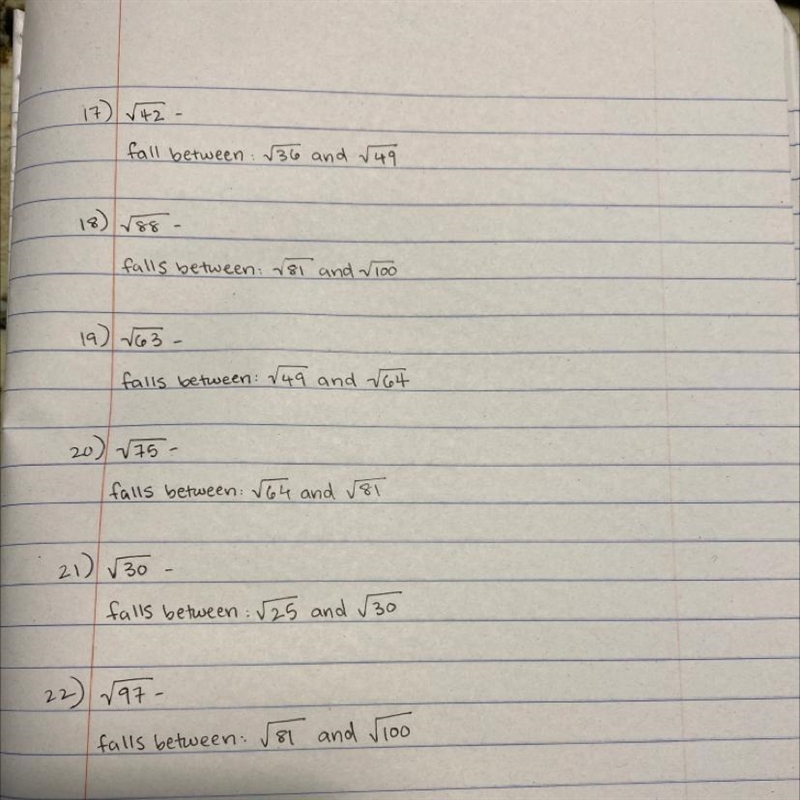 17) √42 -
fall between: √36 and √49
18) √88 -
falls between: √81 and √100
19) √63 -
falls between: √49 and √64
20) √75 -
falls between: √64 and √81
21) √30 -
falls between: √25 and √30
22) √97 -
falls between: √81 and √100